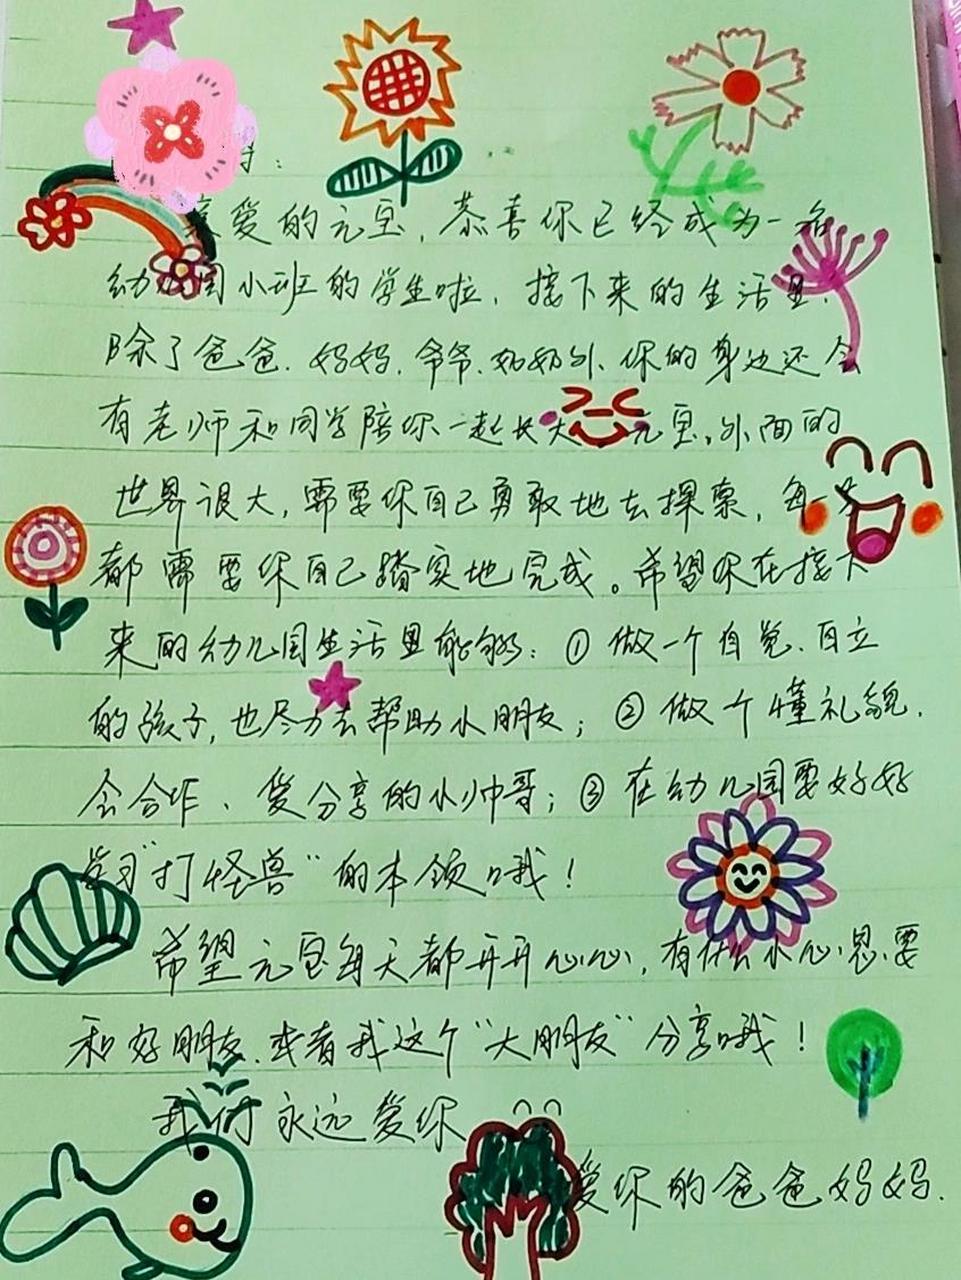 亲爱的元宝，恭喜你已经成为一名
幼儿园小班的学生啦，接下来的生活里
除了爸爸、妈妈、爷爷、奶奶外，你的身边还会
有老师和同学陪你一起长大。元宝，外面的
世界很大，需要你自己勇敢地去探索，每一步
都需要你自己踏实地完成。希望你在接下
来的幼儿园生活里能够：①做一个自觉、自立
的孩子，也尽力去帮助小朋友；②做个懂礼貌、
会合作、爱分享的小帅哥；③在幼儿园要好好
学习“打怪兽”的本领哦！
希望元宝每天都开开心心，有什么小心思要
和好朋友、或者我这个“大朋友”分享哦！
我们永远爱你
爱你的爸爸妈妈.